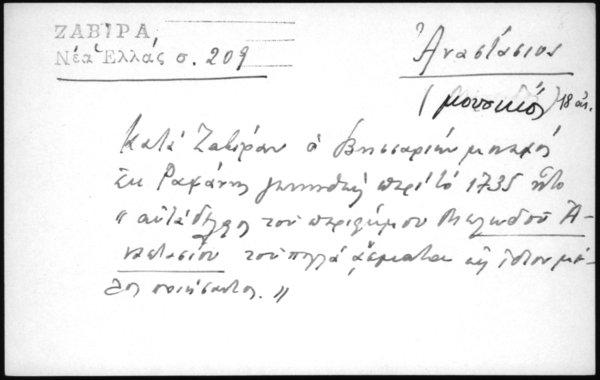 ΖΑΒΙΡΑ,
Νέα Ἑλλάς σ. 209
Ἀναστάσιος
(μουσικός) 18 αἰ.
Κατά Ζαβίραν ὁ Βησσαρίων μοναχός
ἐκ Ραψάνης γεννηθείς περί τό 1735 ἦτο
« αὐτάδελφος τοῦ περιφήμου Μελῳδοῦ Ἀ-
ναστασίου τοῦ πολλά ᾄσματα εἰς ἴδιον μέ-
λος ποιήσαντος. »